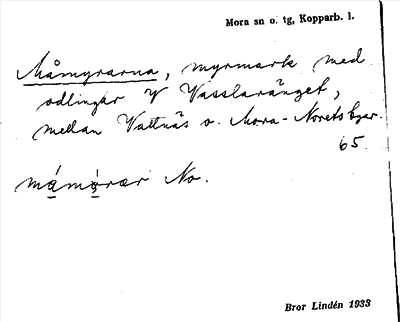 Mora sn o. tg, Kopparb. l.
Måmyrarna, myrmark med
odlingar V Vasslaränget,
mellan Vattnäs o. Mora-Norets byar.
65.
No.
Bror Lindén 1933